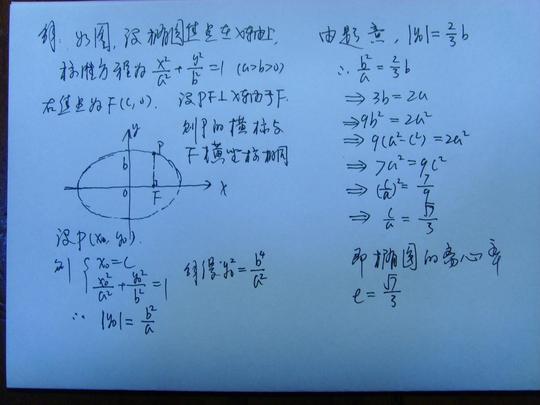 解: 如图, 设椭圆焦点在x轴上,
标准方程为 x²/a² + y²/b² = 1 (a>b>0)
右焦点为F(c,0). 设PF⊥x轴于F.
则P的横标与
F横坐标相同
y
b
P
0
F
x
设P(x₀, y₀).
则 { x₀=c
x₀²/a² + y₀²/b² = 1
解得 y₀² = b⁴/a²
∴ |y₀| = b²/a
由题意, |y₀| = 2/3 b
∴ b²/a = 2/3 b
⇒ 3b = 2a
⇒ 9b² = 2a²
⇒ 9(a²-c²) = 2a²
⇒ 7a² = 9c²
⇒ (c/a)² = 7/9
⇒ c/a = √7/3
即椭圆的离心率
e = √7/3